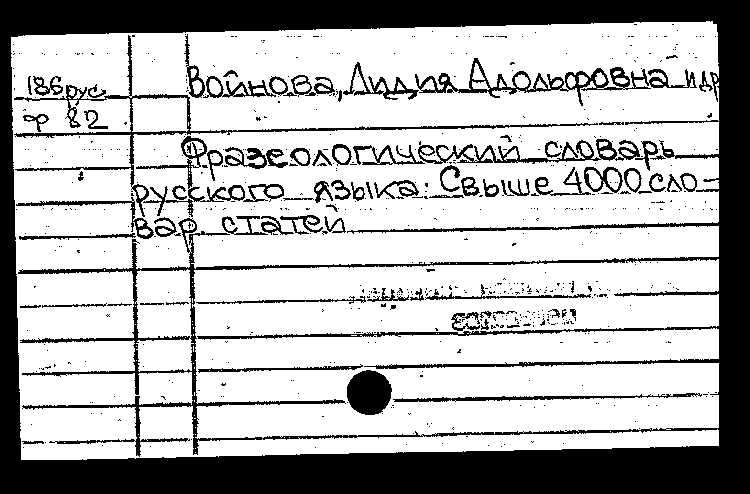 186рус Войнова, Лидия Адольфовна и др
ф 82
Фразеологический словарь
русского языка: Свыше 4000 сло-
вар. статей